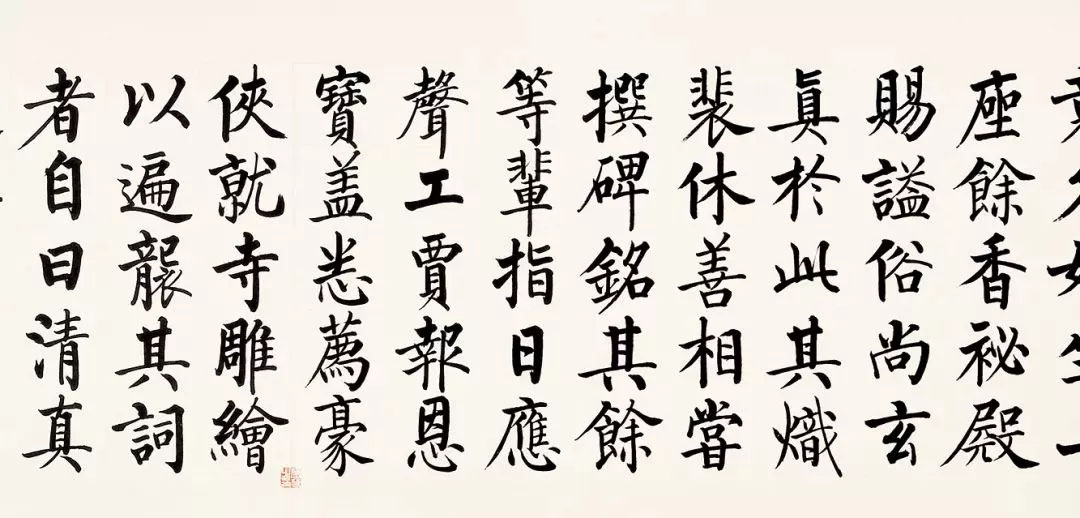 座餘香祕殿
賜謚俗尚玄
眞於此其熾
裴休善相甞
撰碑銘其餘
等輩指日應
聲工賈報恩
寶盖悉薦豪
俠就寺雕繪
以遍襲其詞
者自曰清真